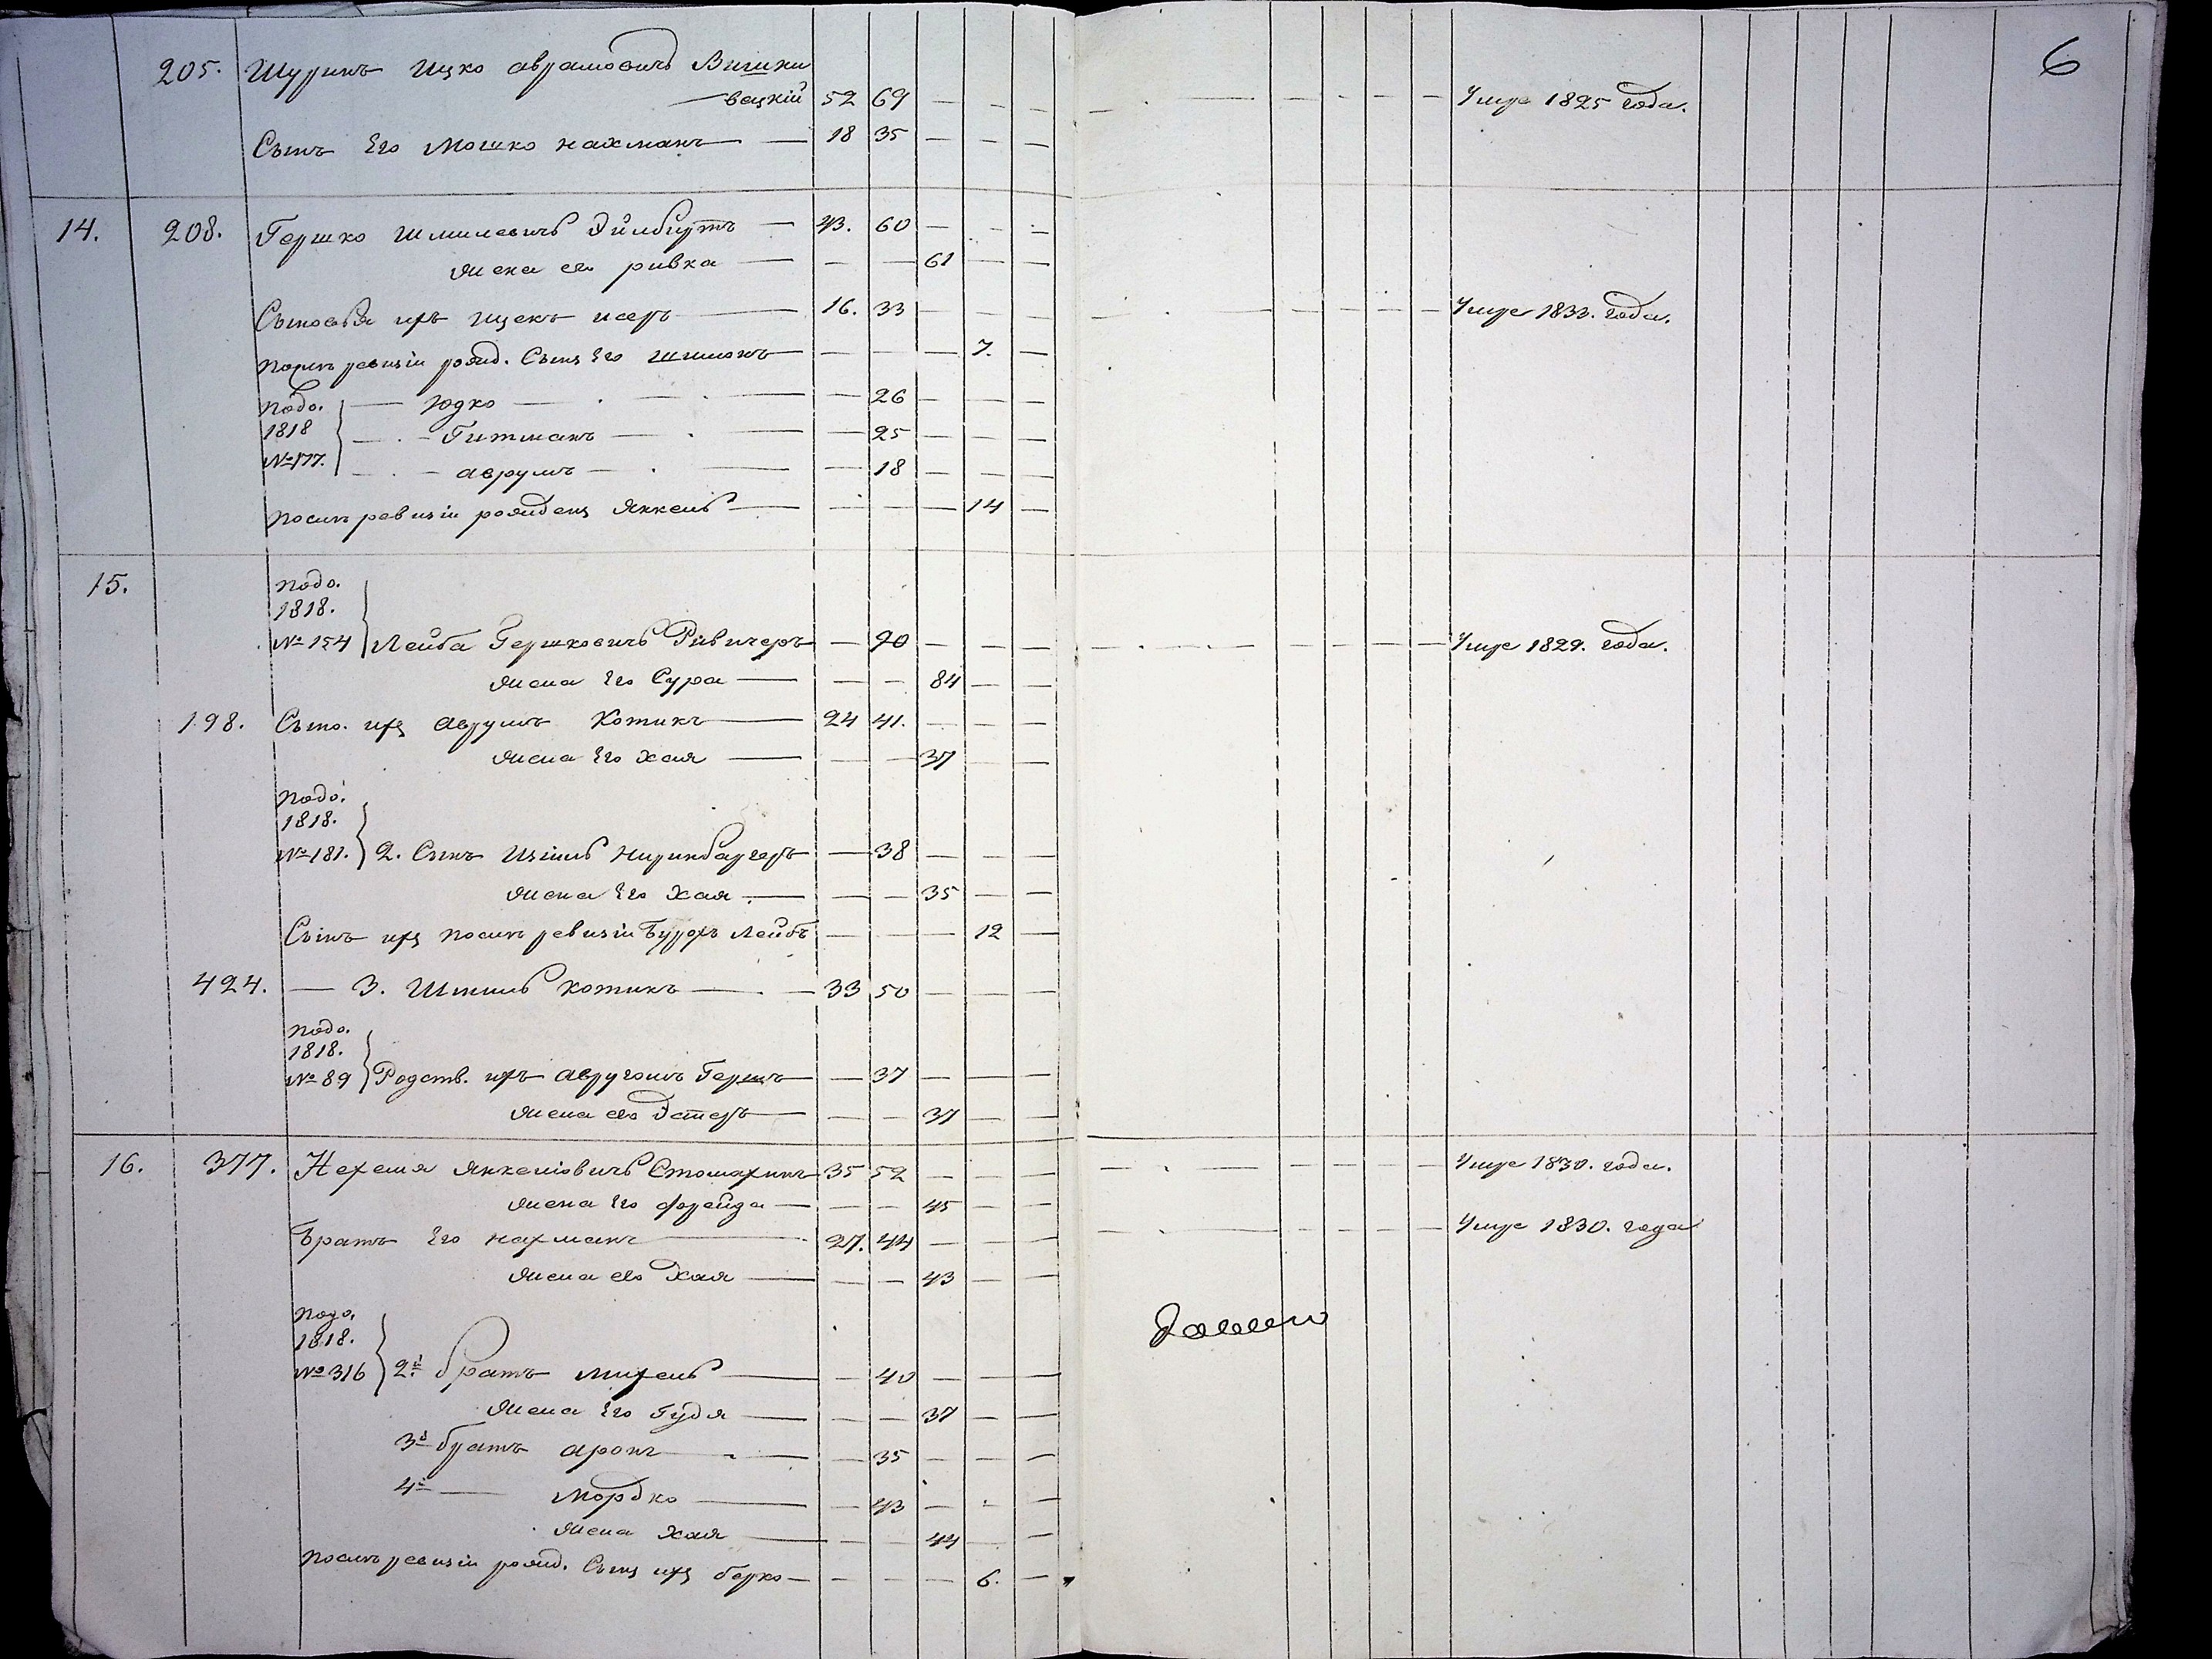 6
205. Шуринъ Ицко Аврамовичь Вишни
вецкій 52 69 — — — — — — — — — Умре 1825 года.
Сынъ Его Мошко Нахманъ — 18 35 — — —
14. 208. Гершко Шмилевичь — 43. 60 — — —
жена его ривка — — — 61 — —
Сыновья ихъ Ицекъ исеръ — 16. 33 — — — — — — — — Умре 1833. года.
послѣ ревизіи рожд. Сынъ Его Шимонъ — — — — 7. —
подо. — Юдко — — 26 — — —
1818 — Гитманъ — — 25 — — —
№ 177. — аврумъ — — 18 — — —
послѣ ревизіи рожденъ Янкель — — — — 14 —
15. подо.
1818.
№ 154 Лейба Гершковичь — 90 — — — — — — — — Умре 1829. года.
жена Его Сура — — — 84 — —
198. Сыно. ихъ Аврумъ Котикъ — 24 41. — — —
жена Его Хая — — — 37 — —
подо.
1818.
№ 181. 2. Сынъ — 38 — — —
жена Его Хая — — — 35 — —
Сынъ ихъ послѣ ревизіи Бурохъ Лейбъ — — — 12 —
424. — 3. Шмиль Котикъ — 33 50 — — —
подо.
1818.
№ 89 Родств. ихъ Гершъ — — 37 — — —
жена его Эстеръ — — — 37 — —
16. 377. Нехемя Янкеліовичь 35 52 — — — — — — — Умре 1830. года.
жена Его фрейда — — — 45 — —
Братъ Его Нахманъ — 27. 44 — — — — — — — Умре 1830. года
жена его Хая — — — 43 — —
подо.
1818.
№ 316 2й братъ Михель — — 40 — — —
жена Его Гудя — — — 37 — —
3й братъ аронъ — — 35 — — —
4й — Мордко — — 43 — — —
жена Хая — — — 44 — —
послѣ ревизіи рожд. Сынъ ихъ берко — — — — 6. —